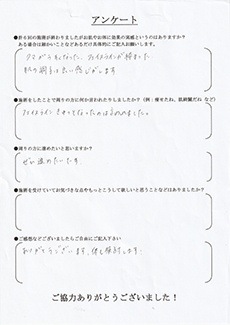 アンケート
●計6回の施術が終わりましたがお肌やお体に効果の実感というのはありますか？
ある場合は細かいことなどあるだけ具体的にご記入お願いします。
クマがうすくなった、フェイスラインが締まった
肌の調子は良い感じがします
●施術をしたことで周りの方に何か言われたりしましたか？（例：痩せたね、肌綺麗だね など）
フェイスラインすっきりなったのはほめれました。
●周りの方に薦めたいと思いますか？
ぜひ薦めたいです。
●施術を受けていてお気づきな点やもっとこうして欲しいと思うことなどはありましたか？
●ご感想などございましたらご自由にご記入下さい
ありがとうございます。
ご協力ありがとうございました！